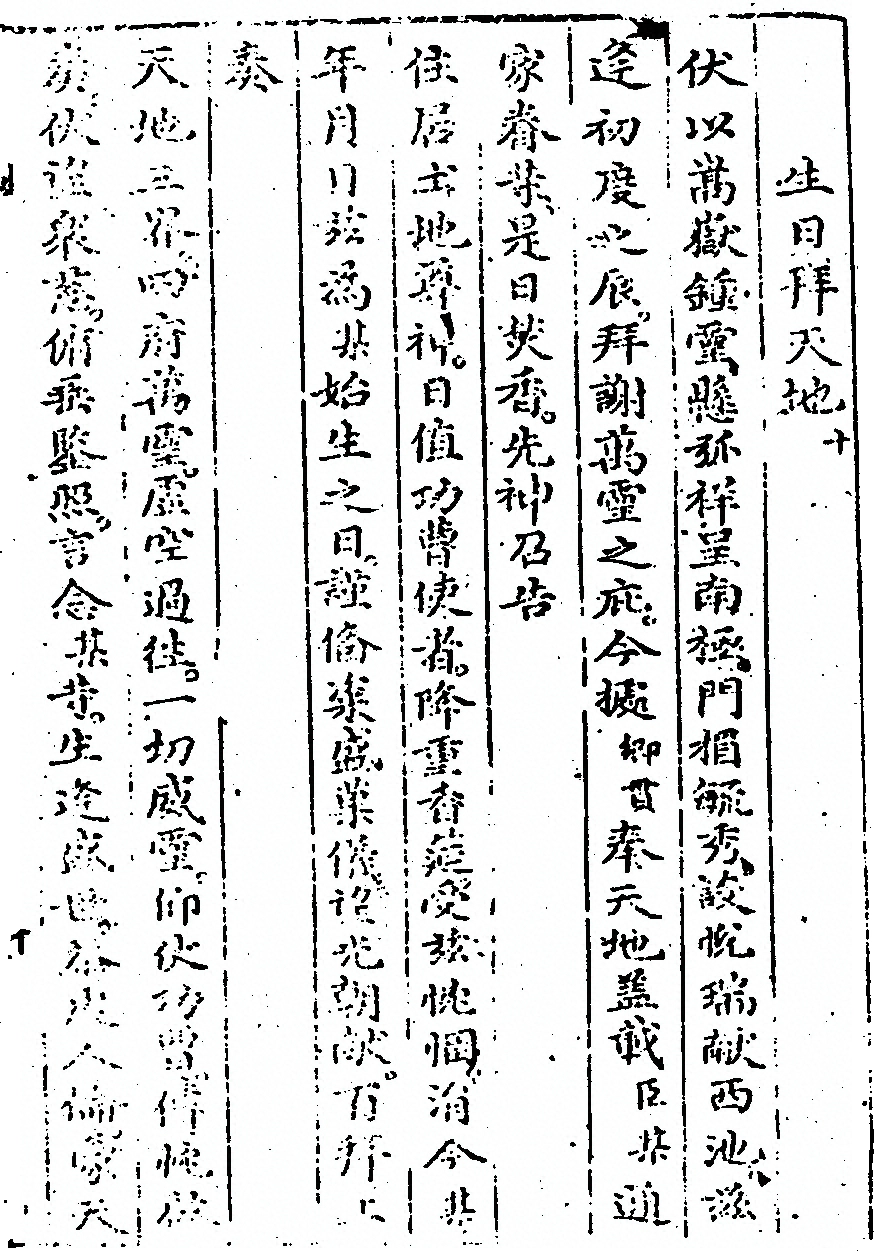 生日拜天地
伏以嵩嶽鍾靈懸弧祥呈南極門楣毓秀設帨瑞献西池兹
逢初度之辰拜謝萬靈之庇今據鄉貫奉天地蓋載臣某通
家眷某是日焚香先神召告
住居土地尊神日值功曹使者降重香筵受兹悃涓今某
年月日兹為某始生之日謹偹粢盛菓儀诏光朝献百拜上
奏
天地三界四府萬靈虛空過往一切威靈仰伏功曹傳
奏伏望衆慈俯垂鑒照言念某等生逢盛世人倫蒙天